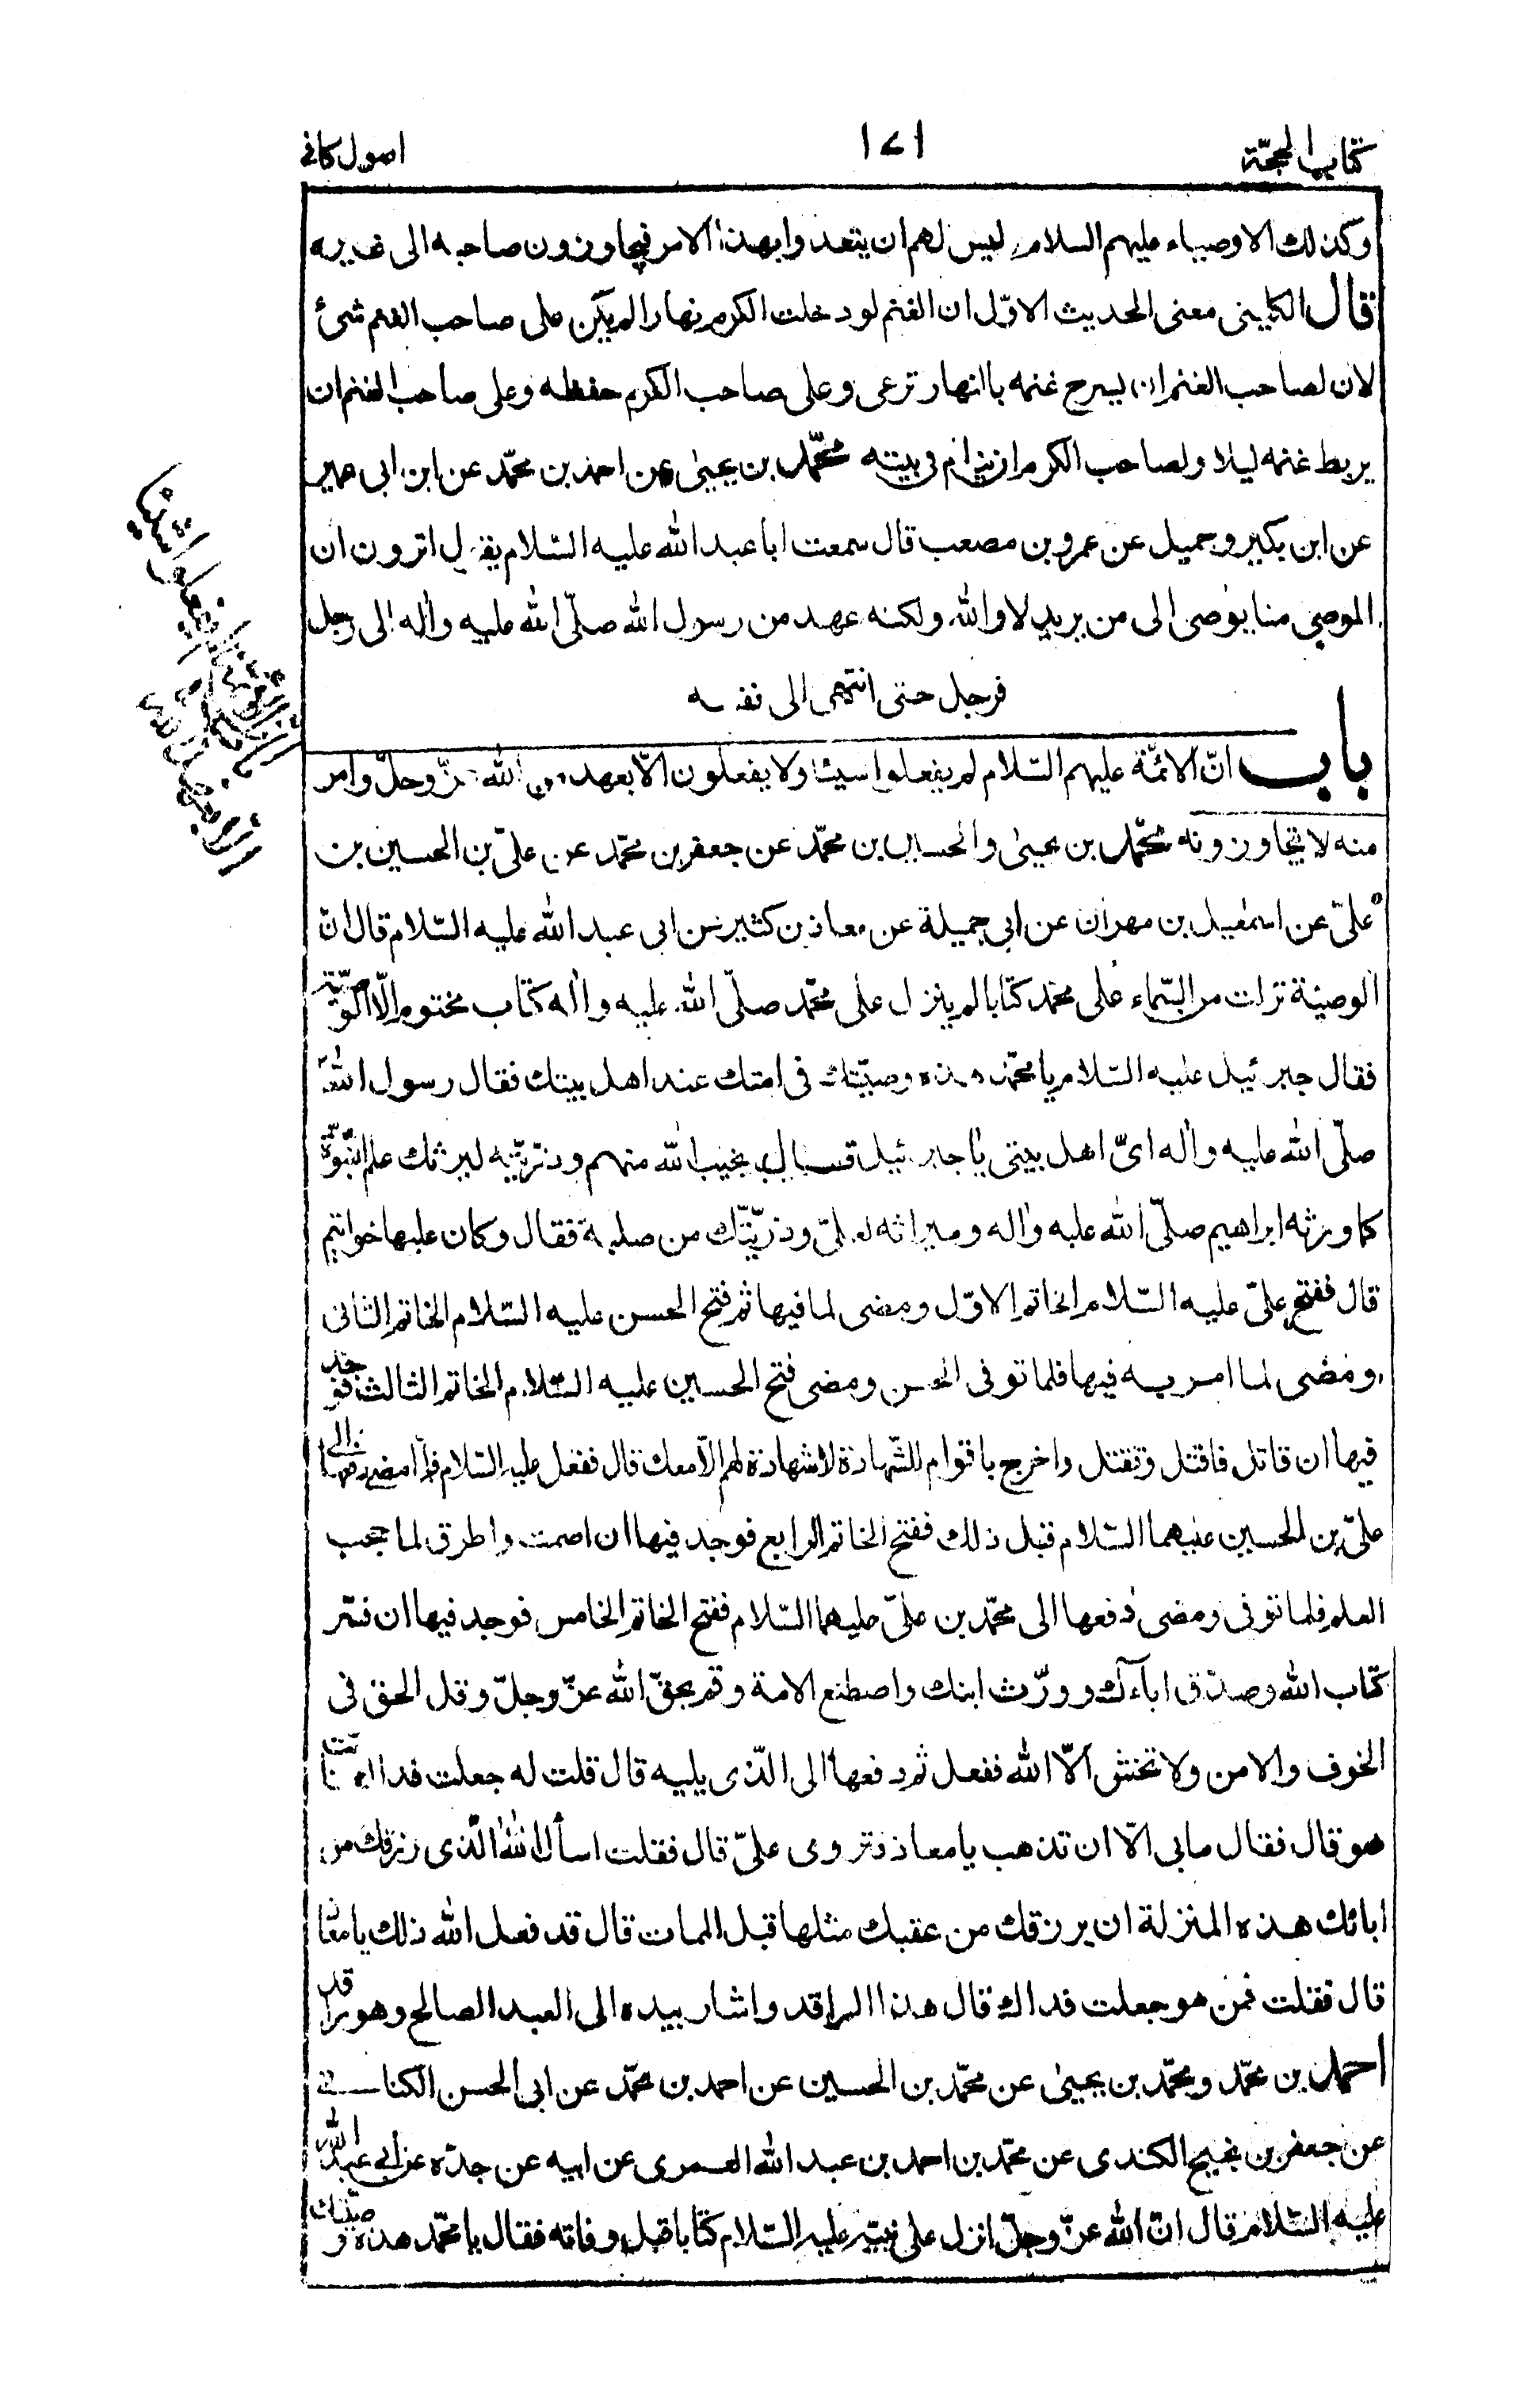 كتاب الحجّة ١٧١ اصول كافى
وكذلك الاوصياء عليهم السلام ليس لهم ان يتعدوا بهذا الامر فيجاوزون صاحبه الى غيره
قال الكلينى معنى الحديث الاوّل ان الغنم لو دخلت الكرم نهارا لم يكن على صاحب الغنم شئ
لان لصاحب الغنم ان يسرح غنمه بالنهار ترعى وعلى صاحب الكرم حفظه وعلى صاحب الغنم ان
يربط غنمه ليلا ولصاحب الكرم ان ينام فى بيته محمّد بن يحيىٰ عن احمد بن محمّد عن ابن ابى عمير
عن ابن بكير وجميل عن عمرو بن مصعب قال سمعت ابا عبد الله عليه السّلام يقول اترون ان
الموصى منا يوصى الى من يريد لا والله ولكنه عهد من رسول الله صلّى الله عليه واٰله الى رجل
فرجل حتى انتهى الى نفسه
باب انّ الائمّة عليهم السّلام لم يفعلوا شيئا ولا يفعلون الّا بعهد من الله عزّ وجلّ وامر
منه لا يتجاوزونه محمّد بن يحيىٰ والحسين بن محمّد عن جعفر بن محمّد عن علىّ بن الحسين بن
علىّ عن اسمٰعيل بن مهران عن ابى جميلة عن معاذ بن كثير عن ابى عبد الله عليه السّلام قال انّ
الوصيّة نزلت من السّماء على محمّد كتابا لم ينزل على محمّد صلّى الله عليه واٰله كتاب مختوم الّا الوصيّة
فقال جبرئيل عليه السّلام يا محمّد هذه وصيّتك فى امتك عند اهل بيتك فقال رسول الله
صلّى الله عليه واٰله اىّ اهل بيتى يا جبرئيل قال نجيب الله منهم وذرّيّته ليرثك علم النّبوّة
كما ورثه ابراهيم صلّى الله عليه واٰله وميراثه لعلىّ وذرّيّتك من صلبه فقال وكان عليها خواتيم
قال ففتح علىّ عليه السّلام الخاتم الاوّل ومضى لما فيها ثم فتح الحسن عليه السّلام الخاتم الثانى
ومضى لما امر به فيها فلما توفى الحسن ومضى فتح الحسين عليه السّلام الخاتم الثالث فوجد
فيها ان قاتل فاقتل وتقتل واخرج باقوام للشّهادة لا شهادة لهم الّا معك قال ففعل عليه السّلام فلمّا مضى دفعها الى
علىّ بن الحسين عليهما السّلام قبل ذلك ففتح الخاتم الرابع فوجد فيها ان اصمت واطرق لما حجب
العلم فلما توفى ومضى دفعها الى محمّد بن علىّ عليهما السّلام ففتح الخاتم الخامس فوجد فيها ان فسّر
كتاب الله وصدّق اباءك وورّث ابنك واصطنع الامة وقم بحقّ الله عزّ وجلّ وقل الحق فى
الخوف والامن ولا تخش الّا الله ففعل ثم دفعها الى الّذى يليه قال قلت له جعلت فداك فانت
هو قال فقال ما بى الّا ان تذهب يا معاذ فتروى علىّ قال فقلت اسأل الله الّذى رزقك من
ابائك هذه المنزلة ان يرزقك من عقبك مثلها قبل الممات قال قد فعل الله ذلك يا معاذ
قال فقلت فمن هو جعلت فداك قال هذا الراقد واشار بيده الى العبد الصالح وهو راقد
احمد بن محمّد ومحمّد بن يحيىٰ عن محمّد بن الحسين عن احمد بن محمّد عن ابى الحسن الكنانى
عن جعفر بن نجيح الكندى عن محمّد بن احمد بن عبد الله العمرى عن ابيه عن جدّه عن ابى عبد الله
عليه السّلام قال انّ الله عزّ وجلّ انزل على نبيّه عليه السّلام كتابا قبل وفاته فقال يا محمّد هذه وصيّتك